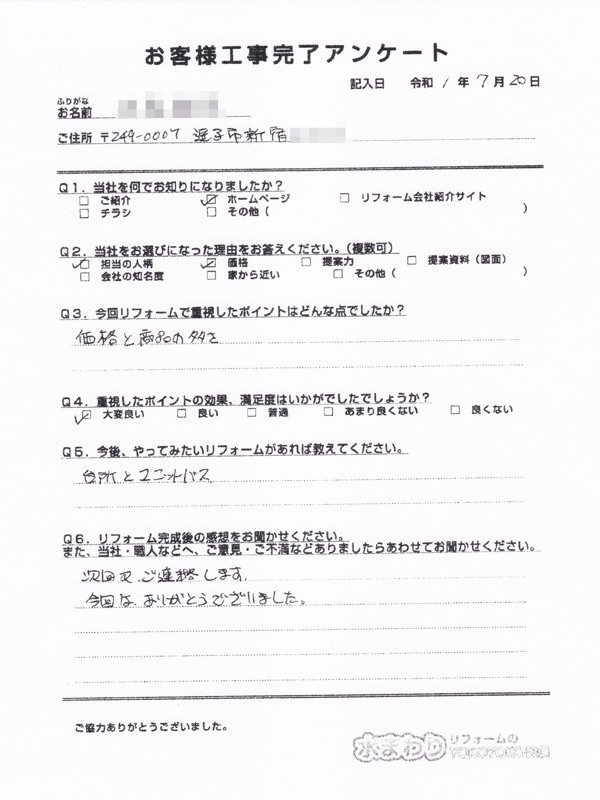 お客様工事完了アンケート
記入日 令和 1 年 7 月 20 日
ふりがな
お名前
ご住所 〒249-0007 逗子市新宿
Q1．当社を何でお知りになりましたか？
□ ご紹介 ☑ ホームページ □ リフォーム会社紹介サイト
□ チラシ □ その他（ ）
Q2．当社をお選びになった理由をお答えください。（複数可）
☑ 担当の人柄 ☑ 価格 □ 提案力 □ 提案資料（図面）
□ 会社の知名度 □ 家から近い □ その他（ ）
Q3．今回リフォームで重視したポイントはどんな点でしたか？
価格と商品の多さ
Q4．重視したポイントの効果、満足度はいかがでしたでしょうか？
☑ 大変良い □ 良い □ 普通 □ あまり良くない □ 良くない
Q5．今後、やってみたいリフォームがあれば教えてください。
台所とユニットバス
Q6．リフォーム完成後の感想をお聞かせください。
また、当社・職人などへ、ご意見・ご不満などありましたらあわせてお聞かせください。
次回又、ご連絡します。
今回は、ありがとうございました。
ご協力ありがとうございました。
水まわり リフォームの